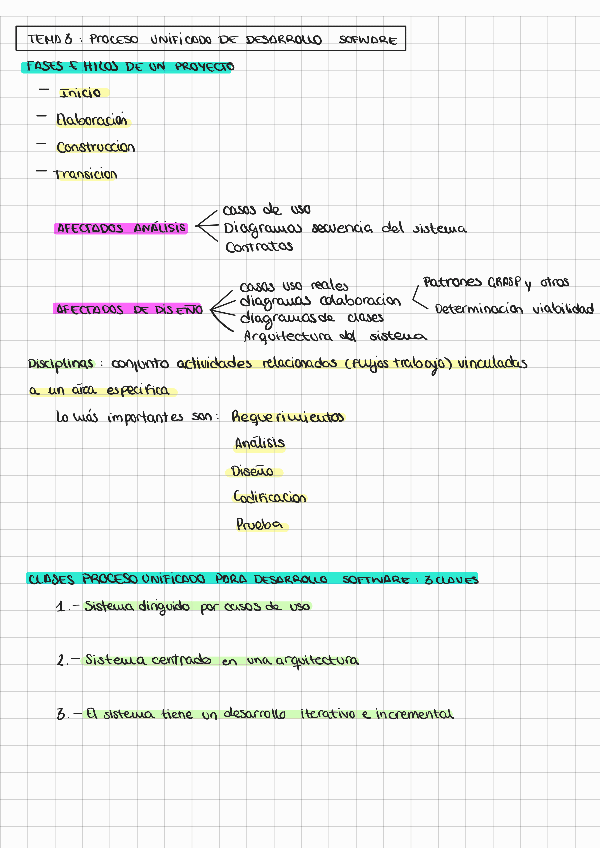 TEMA 8: PROCESO UNIFICADO DE DESARROLLO SOFWARE
FASES E HILOS DE UN PROYECTO
- Inicio
- Elaboracion
- Construccion
- Transicion
AFECTADOS ANÁLISIS
casos de uso
Diagramas secuencia del sistema
Contratos
AFECTADOS DE DISEÑO
casos uso reales
diagramas colaboracion
diagramas de clases
Arquitectura del sistema
Patrones GRASP y otros
Determinacion viabilidad
Disciplinas: conjunto actividades relacionados (flujos trabajo) vinculadas
a un área especifica
Lo más importantes son: Requerimientos
Análisis
Diseño
Codificacion
Prueba
CLASES PROCESO UNIFICADO PARA DESARROLLO SOFTWARE: 3 CLAVES
1.- Sistema diriguido por casos de uso
2.- Sistema centrado en una arquitectura
3.- El sistema tiene un desarrollo iterativo e incremental